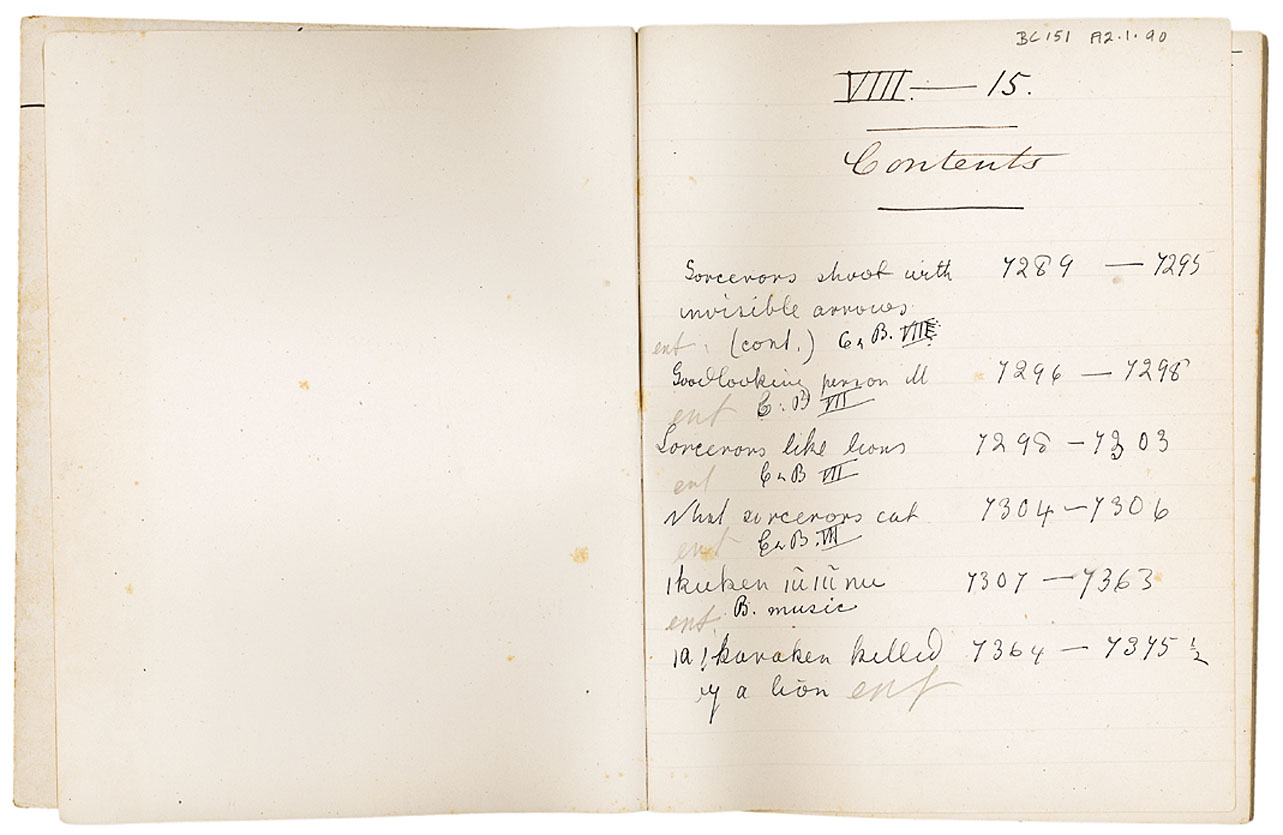 BC 151 A2.1.90
VIII. — 15.
Contents
Sorcerors shoot with 7289 — 7295
invisible arrows.
ent. (cont.) C & B. VIII
Goodlooking person ill 7296 — 7298
ent C. B VII
Sorcerors like lions 7298 — 7303
ent C & B VII
What sorcerors eat 7304 — 7306
ent C & B. VII
7307 — 7363
ent. B. music
killed 7364 — 7375 ½
by a lion ent